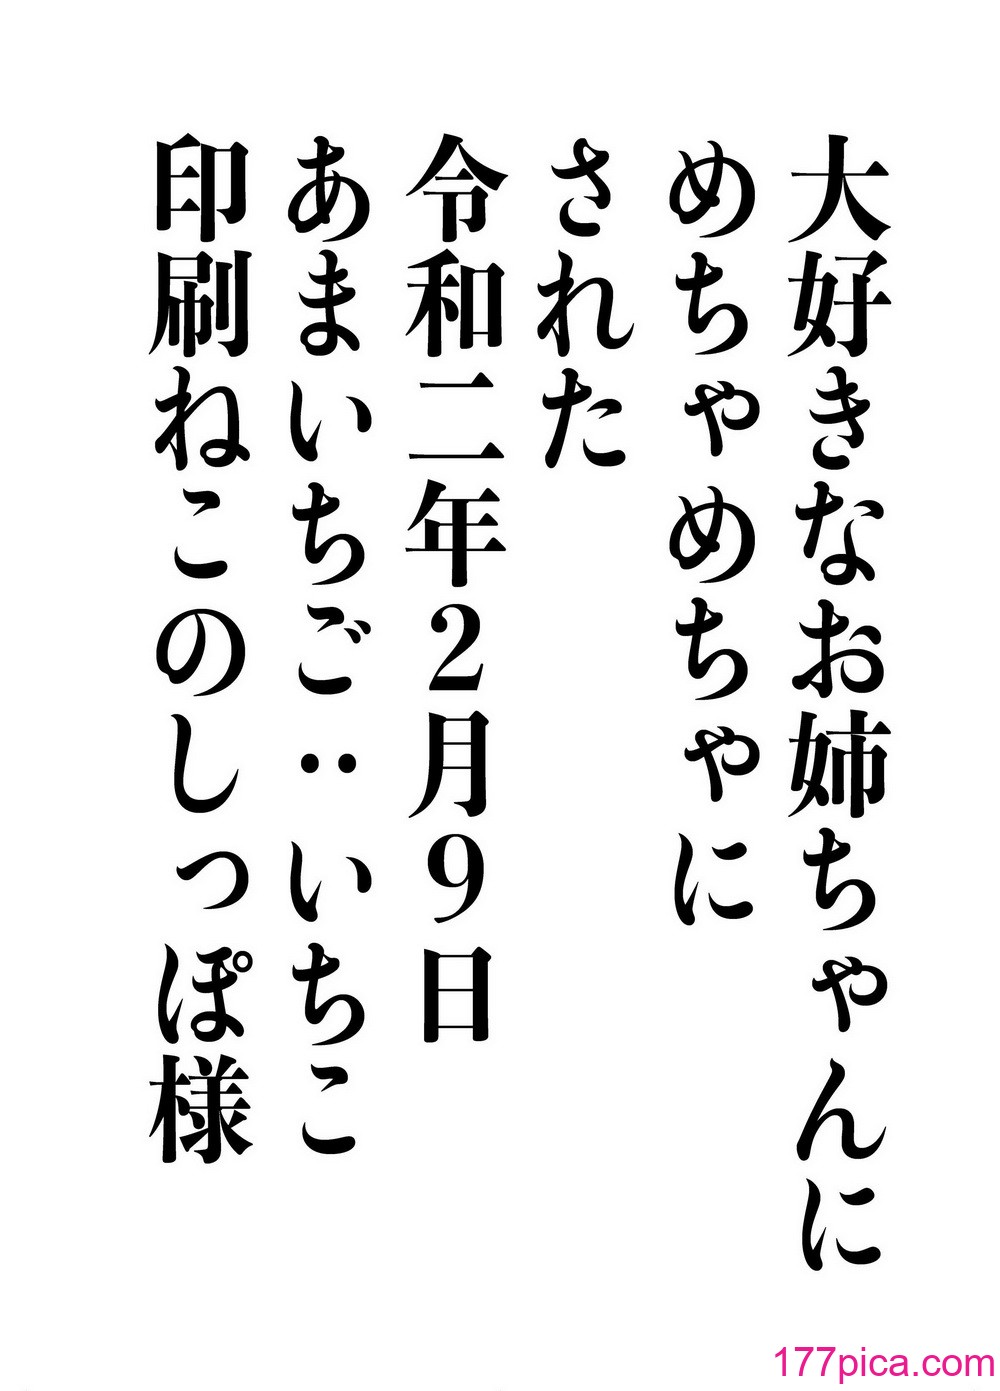 大好きなお姉ちゃんに
めちゃめちゃに
された
令和二年2月9日
あまいちご：いちこ
印刷ねこのしっぽ様
177pica.com